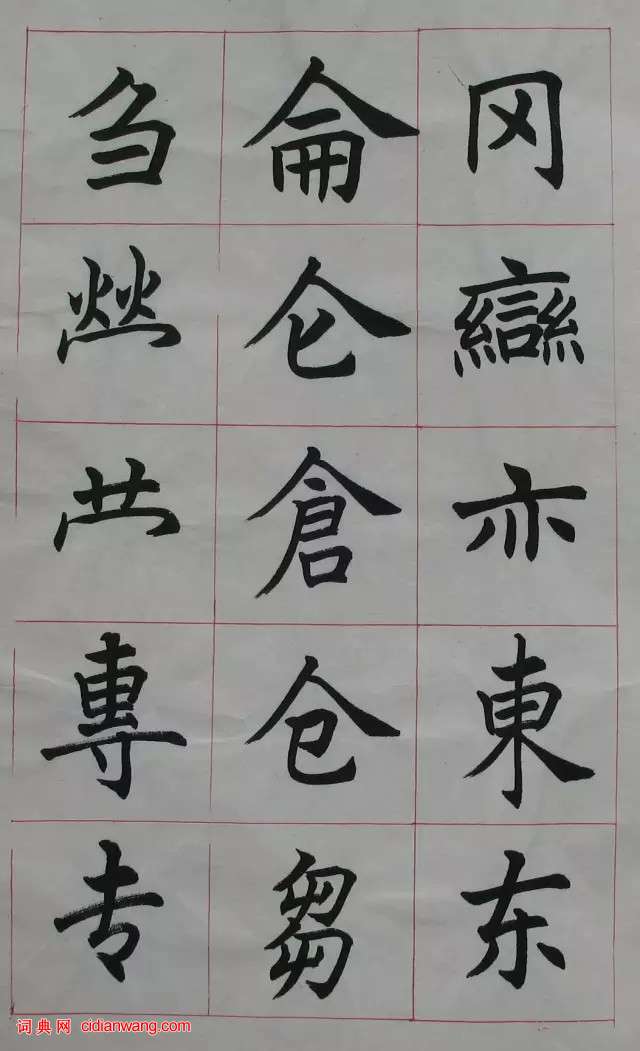 冈䜌亦東东
侖仑倉仓芻
刍𤇾𫇦專专
词典网 cidianwang.com